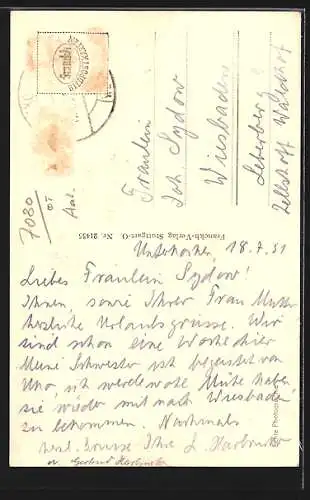 Fräulein
Joh. Sydow
Wiesbaden
Leberberg 9
7080
Franckh-Verlag Stuttgart-O. Nr. 21455
Unterkochen, 18.7.51
Liebes Fräulein Sydow!
Ihnen, sowie Ihrer Frau Mutter
herzliche Urlaubsgrüsse. Wir
sind schon eine Woche hier
Meine Schwester ist begeistert von
und ich werde wohl Mühe haben,
sie wieder mit nach Wiesbaden
zu bekommen. Nochmals
herzl. Grüsse Ihre L.
u. Gertrud
Echte Photographie